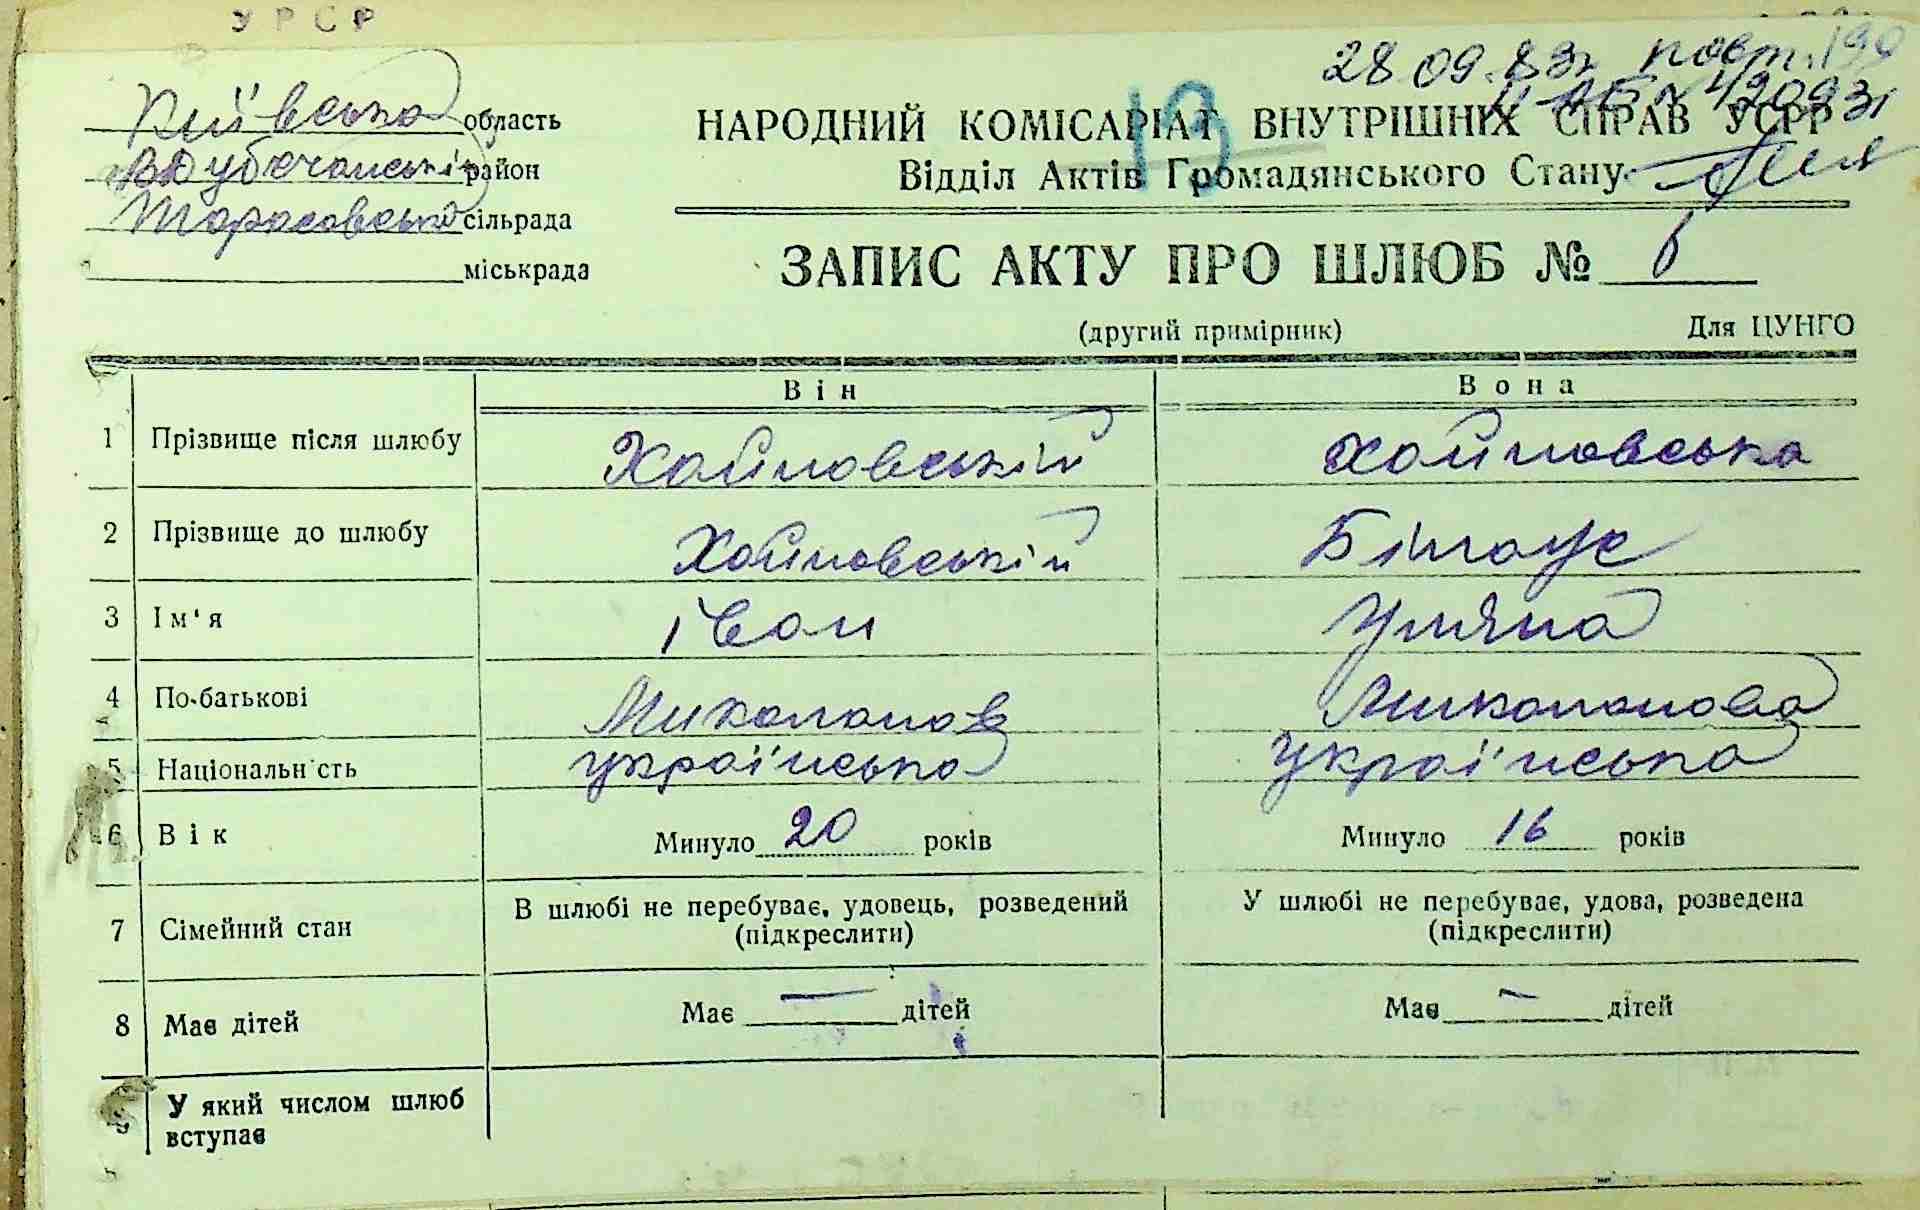 УРСР
28 09.83г. повт.
НАРОДНИЙ КОМІСАРІАТ ВНУТРІШНІХ СПРАВ УСРР
Відділ Актів Громадянського Стану
13
Київська область
В Дубечанський район
Тарасовська сільрада
міськрада
ЗАПИС АКТУ ПРО ШЛЮБ №
(другий примірник) Для ЦУНГО
Він Вона
1 Прізвище після шлюбу Хойновській Хойновська
2 Прізвище до шлюбу Хойновській Білоус
3 Ім'я Іван Уляна
4 По-батькові Миколайов Миколайова
5 Національність українська українська
6 Вік Минуло 20 років Минуло 16 років
7 Сімейний стан В шлюбі не перебуває, удовець, розведений (підкреслити) У шлюбі не перебуває, удова, розведена (підкреслити)
8 Має дітей Має — дітей Має — дітей
У який числом шлюб
вступає